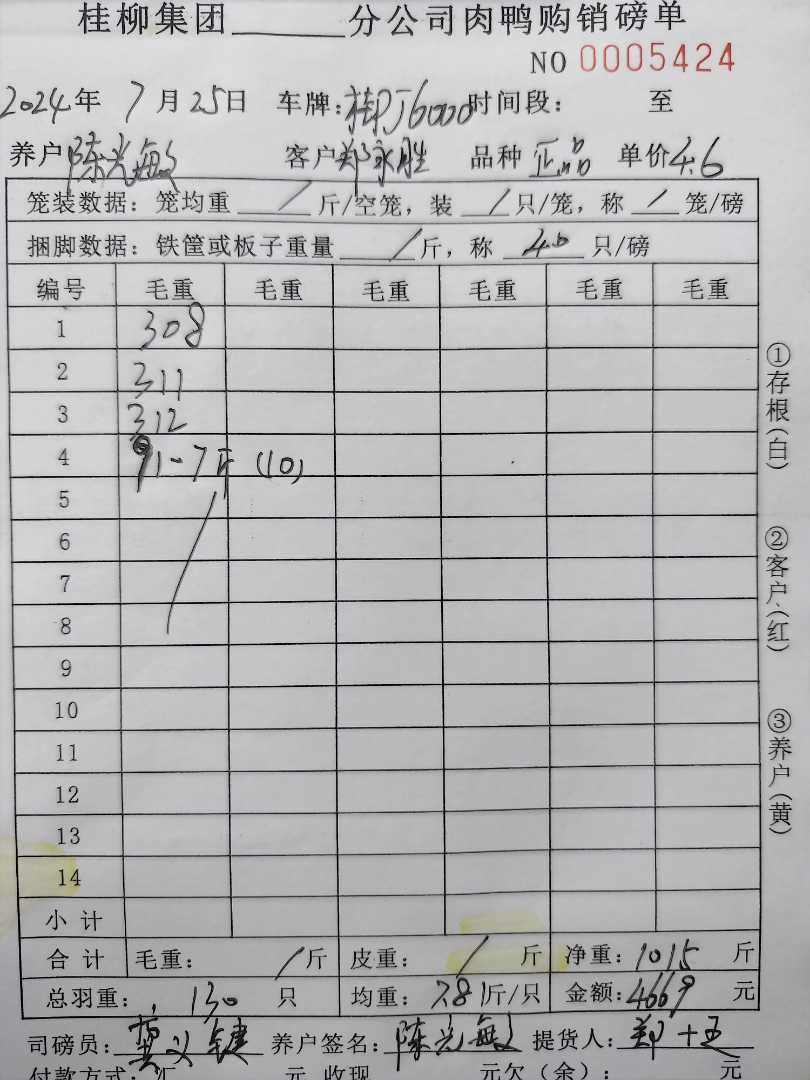 桂柳集团______分公司肉鸭购销磅单
NO 0005424
2024年 7月25日 车牌:桂PJ6000 时间段: 至
养户 陈兴敏 客户 郑永胜 品种 正品 单价 4.6
笼装数据: 笼均重 / 斤/空笼, 装 / 只/笼, 称 / 笼/磅
捆脚数据: 铁筐或板子重量 / 斤, 称 40 只/磅
编号 毛重 毛重 毛重 毛重 毛重 毛重
1 308
2 311
3 312
4 91-7斤 (10)
5
6
7
8
9
10
11
12
13
14
小计
合计 毛重: / 斤 皮重: / 斤 净重: 1015 斤
总羽重: 130 只 均重: 7.81斤/只 金额: 4669 元
司磅员: 养户签名: 陈兴敏 提货人: 郑
付款方式: 汇 元 收现 元欠(余): 元
①存根(白)
②客户(红)
③养户(黄)